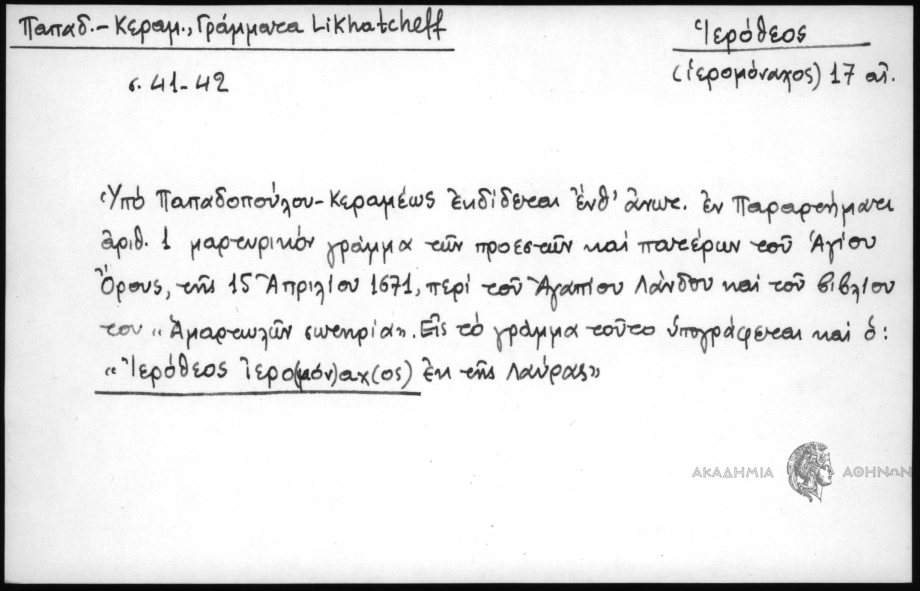 Παπαδ.-Κεραμ., Γράμματα Likhatcheff
Ἱερόθεος
σ. 41-42
(ἱερομόναχος) 17 αἰ.
Ὑπό Παπαδοπούλου-Κεραμέως ἐκδίδεται ἔνθ' ἄνωτ. ἐν Παραρτήματι
ἀριθ. 1 μαρτυρικόν γράμμα τῶν προεστῶν καί πατέρων τοῦ Ἁγίου
Ὄρους, τῆς 15 Ἀπριλίου 1671, περί τοῦ Ἀγαπίου Λάνδου καί τοῦ βιβλίου
του «Ἁμαρτωλῶν σωτηρία». Εἰς τό γράμμα τοῦτο ὑπογράφεται καί ὁ:
«Ἱερόθεος ἱερο(μόν)αχ(ος) ἐκ τῆς Λαύρας»
ΑΚΑΔΗΜΙΑ ΑΘΗΝΩΝ